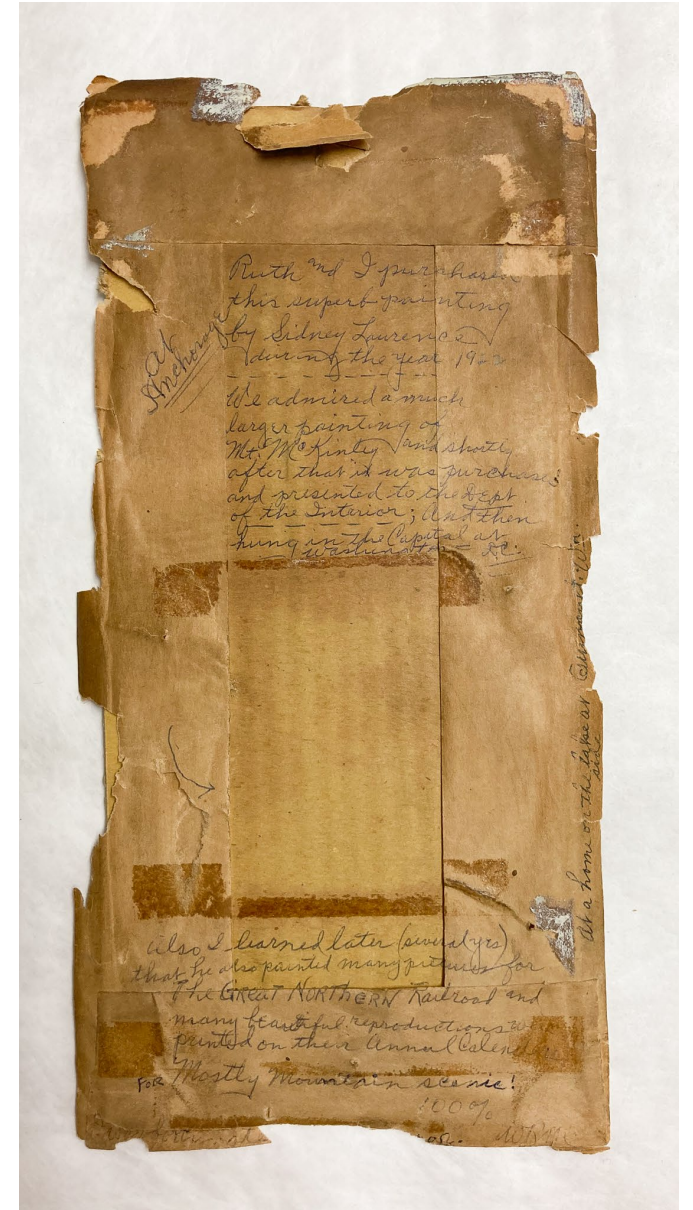 Ruth and I purchased
this superb painting
by Sidney Laurence
during the year 19
at
Anchorage
We admired a much
larger painting of
Mt. McKinley and shortly
after that it was purchase
and presented to the Dept
of the Interior; And then
hung in the Capital at
Washington D.C.
At a home on the lake at
side
also I learned later (several yrs)
that he also painted many pictures for
The GREAT NORTHERN Railroad and
many beautiful reproductions
printed on their Annual
FOR Mostly Mountain scenic!
100%